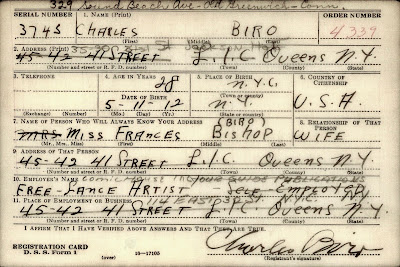 329 Sound Beach Ave - Old Greenwich - Conn.
SERIAL NUMBER 1. NAME (Print) ORDER NUMBER
3745 CHARLES BIRO 4339
(First) (Middle) (Last)
2. ADDRESS (Print)
45-42 41 STREET L.I.C QUEENS N.Y.
(Number and street or R. F. D. number) (Town) (County) (State)
3. TELEPHONE 4. AGE IN YEARS 5. PLACE OF BIRTH 6. COUNTRY OF CITIZENSHIP
28 N.Y.C.
DATE OF BIRTH (Town or county)
5-11-12 N.Y. U.S.A.
(Exchange) (Number) (Mo.) (Day) (Yr.) (State or country)
7. NAME OF PERSON WHO WILL ALWAYS KNOW YOUR ADDRESS 8. RELATIONSHIP OF THAT PERSON
(BIRO)
MRS. MISS FRANCES BISHOP WIFE
(Mr., Mrs., Miss) (First) (Middle) (Last)
9. ADDRESS OF THAT PERSON
45-42 41 STREET L.I.C. QUEENS N.Y.
(Number and street or R. F. D. number) (Town) (County) (State)
10. EMPLOYER'S NAME COMIC HOUSE INC
FREE-LANCE ARTIST - SELF-EMPLOYED
11. PLACE OF EMPLOYMENT OR BUSINESS 114 EAST 32 ST N.Y.C. N.Y.
45-42 41 STREET L.I.C. QUEENS N.Y.
(Number and street or R. F. D. number) (Town) (County) (State)
I AFFIRM THAT I HAVE VERIFIED ABOVE ANSWERS AND THAT THEY ARE TRUE.
REGISTRATION CARD
D. S. S. Form 1 16-17105 Charles Biro
(Registrant's signature)